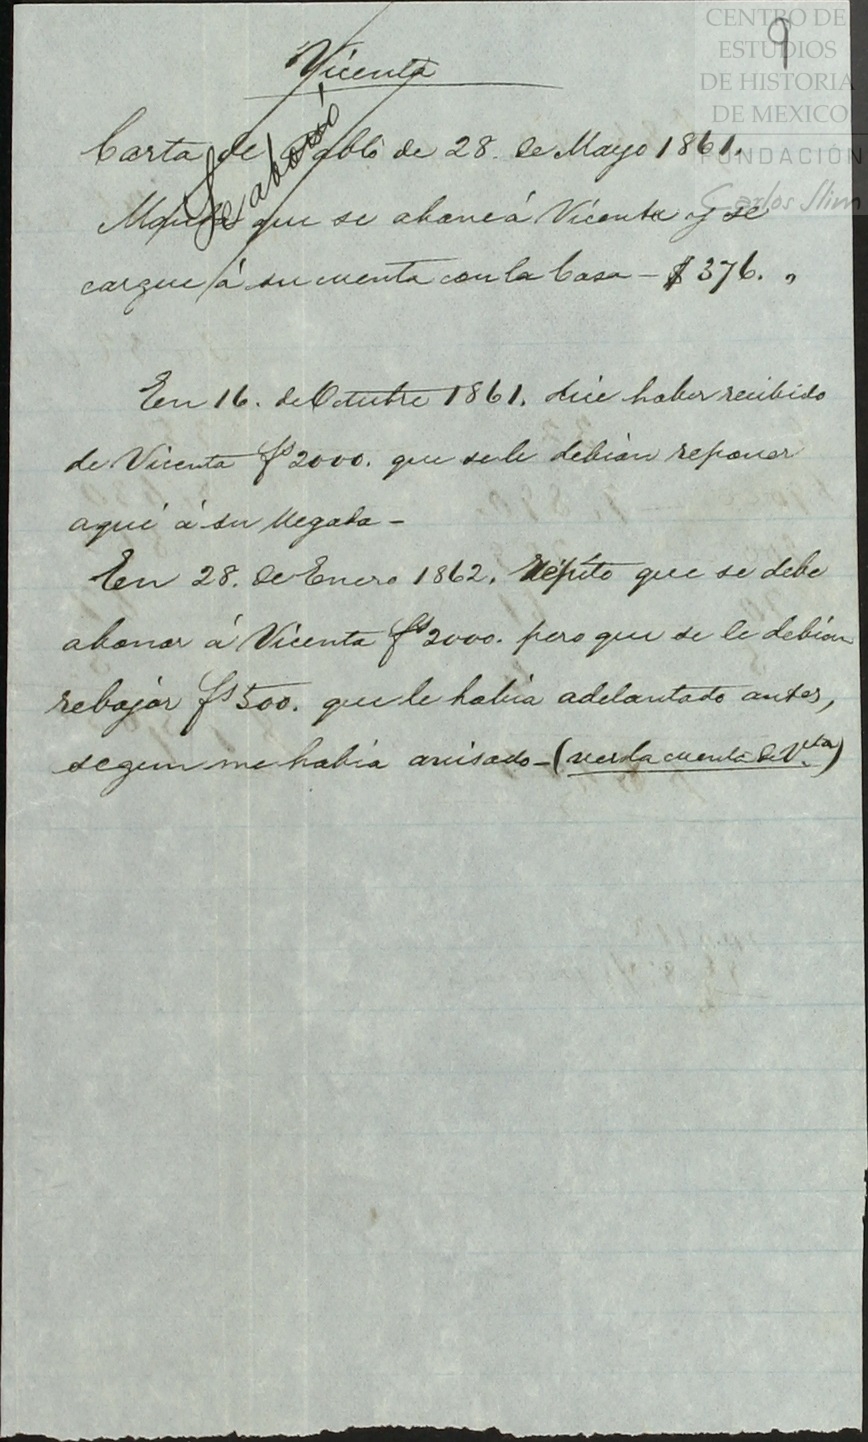 CENTRO DE
ESTUDIOS
DE HISTORIA
DE MEXICO
FUNDACIÓN
Carlos Slim
9
Vicenta
Carta de Pablo de 28. de Mayo 1861.
Se abonó
Manda que se abone á Vicenta y se
cargue á su cuenta con la Casa – $ 376. „
En 16. de Octubre 1861. dice haber recibido
de Vicenta fs 2000. que se le debian reponer
aqui á su llegada –
En 28. de Enero 1862. repito que se debe
abonar á Vicenta fs 2000. pero que se le debian
rebajar fs 500. que le habia adelantado antes,
segun me habia avisado – (ver la cuenta de Vta)